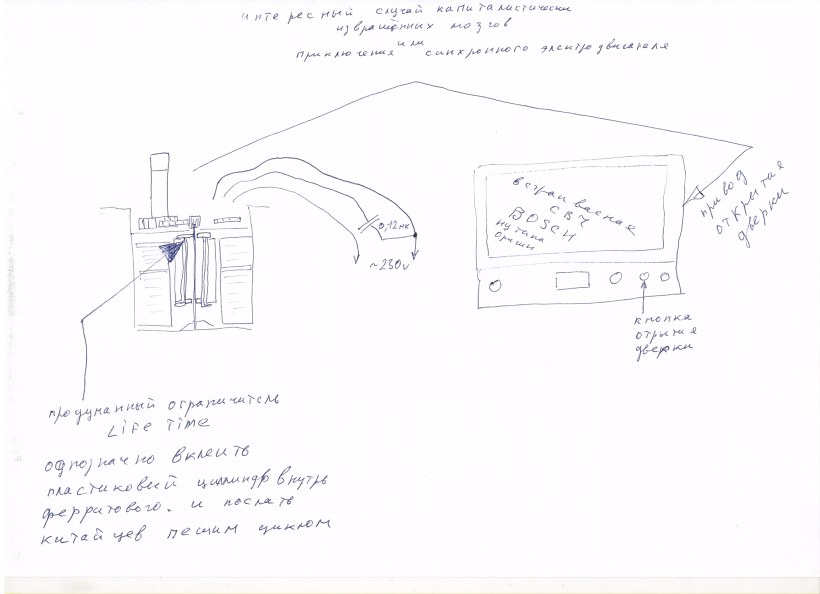 интересный случай капиталистически
извращённых мозгов
или
приключения синхронного электродвигателя
0,12мк
~230v
встраиваемая
СВЧ
BOSCH
привод
открытия
дверки
кнопка
отрытия
дверки
продуманный ограничитель
Life Time
однозначно вклеить
пластиковый цилиндр внутрь
ферритового. и послать
китайцев пешим циклом